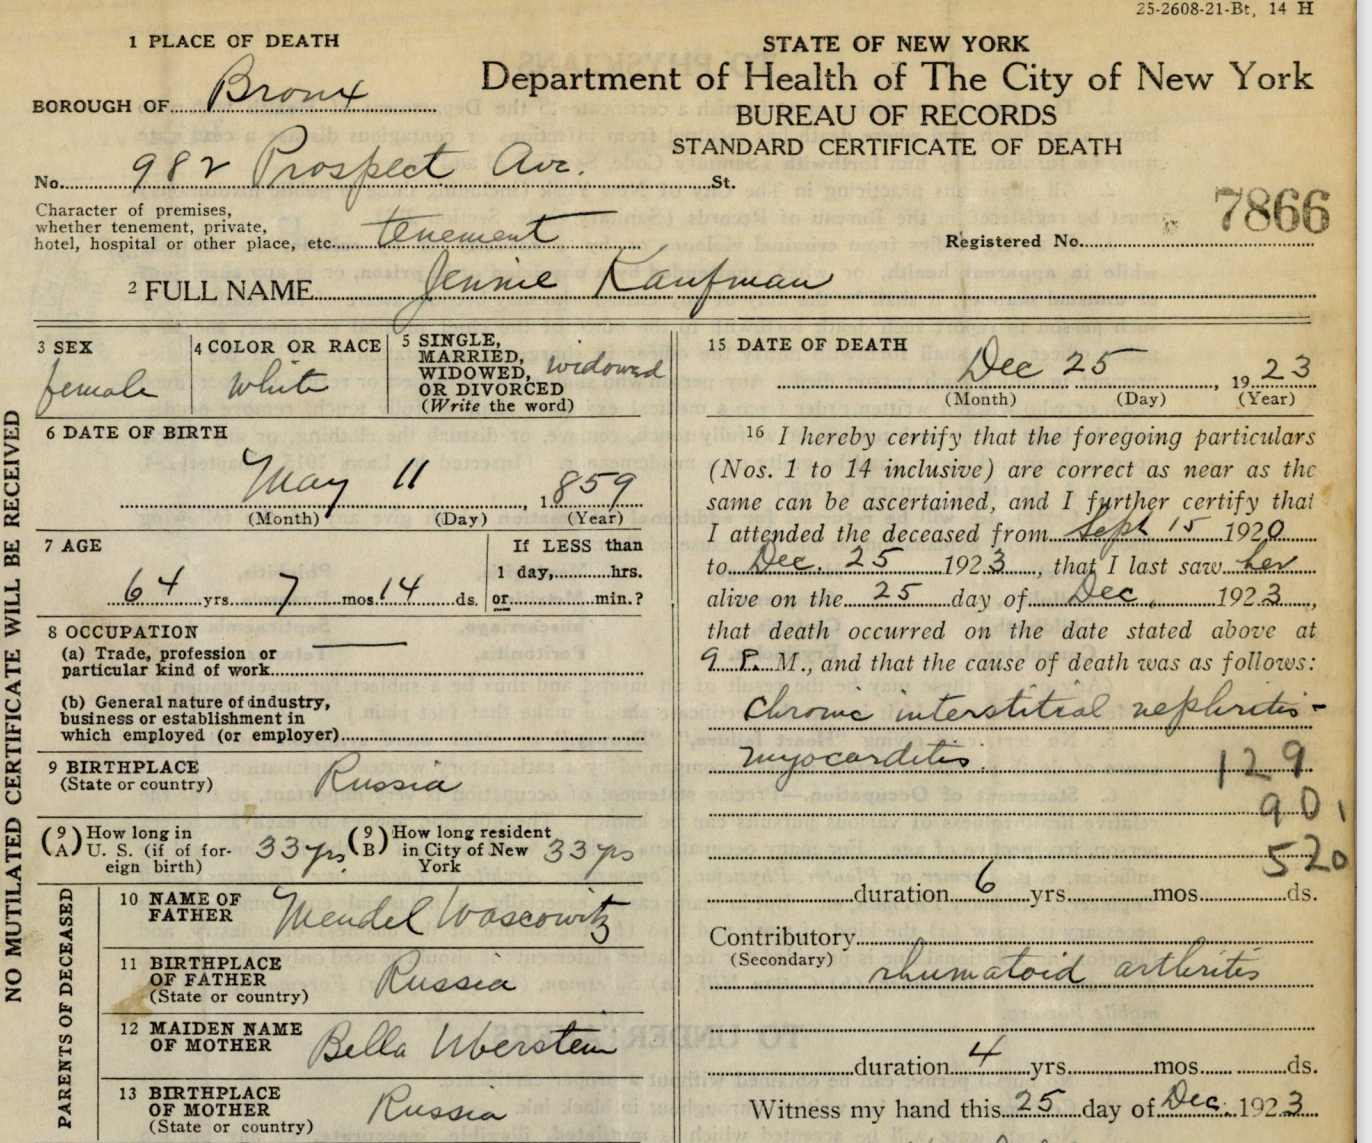 25-2608-21-Bt, 14 H
1 PLACE OF DEATH
BOROUGH OF Bronx
No. 982 Prospect Ave. St.
Character of premises,
whether tenement, private,
hotel, hospital or other place, etc. tenement
STATE OF NEW YORK
Department of Health of The City of New York
BUREAU OF RECORDS
STANDARD CERTIFICATE OF DEATH
7866
Registered No.
2 FULL NAME Jennie Kaufman
NO MUTILATED CERTIFICATE WILL BE RECEIVED
3 SEX
female
4 COLOR OR RACE
white
5 SINGLE,
MARRIED,
WIDOWED,
OR DIVORCED
(Write the word)
widowed
6 DATE OF BIRTH
May 11, 1859
(Month) (Day) (Year)
7 AGE
64 yrs. 7 mos. 14 ds.
If LESS than
1 day,..........hrs.
or..........min.?
8 OCCUPATION
(a) Trade, profession or
particular kind of work —
(b) General nature of industry,
business or establishment in
which employed (or employer)
9 BIRTHPLACE
(State or country) Russia
(9 A) How long in
U. S. (if of for-
eign birth) 33 yrs.
(9 B) How long resident
in City of New
York 33 yrs
PARENTS OF DECEASED
10 NAME OF
FATHER Mendel Woscowitz
11 BIRTHPLACE
OF FATHER
(State or country) Russia
12 MAIDEN NAME
OF MOTHER Bella Uberstein
13 BIRTHPLACE
OF MOTHER
(State or country) Russia
15 DATE OF DEATH
Dec 25, 1923
(Month) (Day) (Year)
16 I hereby certify that the foregoing particulars
(Nos. 1 to 14 inclusive) are correct as near as the
same can be ascertained, and I further certify that
I attended the deceased from Sept 15 1920
to Dec. 25 1923, that I last saw her
alive on the 25 day of Dec. 1923,
that death occurred on the date stated above at
9 P. M., and that the cause of death was as follows:
Chronic interstitial nephritis -
myocarditis. 129
90,
520
duration 6 yrs. mos. ds.
Contributory
(Secondary) rhumatoid arthritis
duration 4 yrs. mos. ds.
Witness my hand this 25 day of Dec. 1923